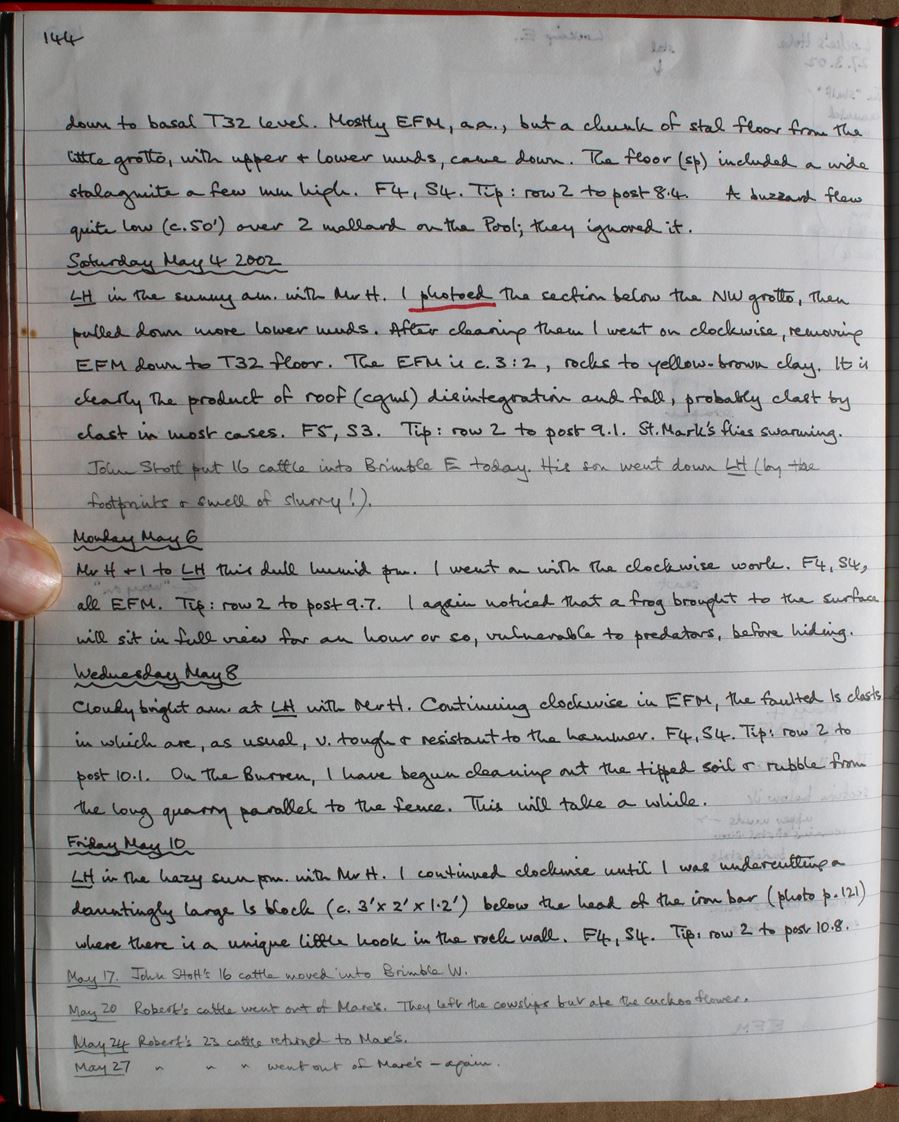 144
down to basal T32 level. Mostly EFM, a.a., but a chunk of stal floor from the
little grotto, with upper + lower muds, came down. The floor (sp) included a wide
stalagmite a few mm high. F4, S4. Tip: row 2 to post 8.4. A buzzard flew
quite low (c. 50') over 2 mallard on the Pool; they ignored it.
Saturday May 4 2002
LH in the sunny am. with Mr H. I photoed the section below the NW grotto, then
pulled down more lower muds. After clearing them I went on clockwise, removing
EFM down to T32 floor. The EFM is c. 3:2, rocks to yellow-brown clay. It is
clearly the product of roof (cgml) disintegration and fall, probably clast by
clast in most cases. F5, S3. Tip: row 2 to post 9.1. St. Mark's flies swarming.
John Stott put 16 cattle into Brimble E today. His son went down LH (by the
footprints & smell of slurry!).
Monday May 6
Mr H + I to LH this dull humid pm. I went on with the clockwise work. F4, S4,
all EFM. Tip: row 2 to post 9.7. I again noticed that a frog brought to the surface
will sit in full view for an hour or so, vulnerable to predators, before hiding.
Wednesday May 8
Cloudy bright am. at LH with Mr H. Continuing clockwise in EFM, the faulted ls clasts
in which are, as usual, v. tough & resistant to the hammer. F4, S4. Tip: row 2 to
post 10.1. On the Burren, I have begun cleaning out the tipped soil & rubble from
the long quarry parallel to the fence. This will take a while.
Friday May 10
LH in the hazy sun pm. with Mr H. I continued clockwise until I was undercutting a
dauntingly large ls block (c. 3' x 2' x 1.2') below the head of the iron bar (photo p.121)
where there is a unique little hook in the rock wall. F4, S4. Tip: row 2 to post 10.8.
May 17. John Stott's 16 cattle moved into Brimble W.
May 20 Robert's cattle went out of Mare's. They left the cowslips but ate the cuckoo flower.
May 24 Robert's 23 cattle returned to Mare's.
May 27 " " " went out of Mare's - again.